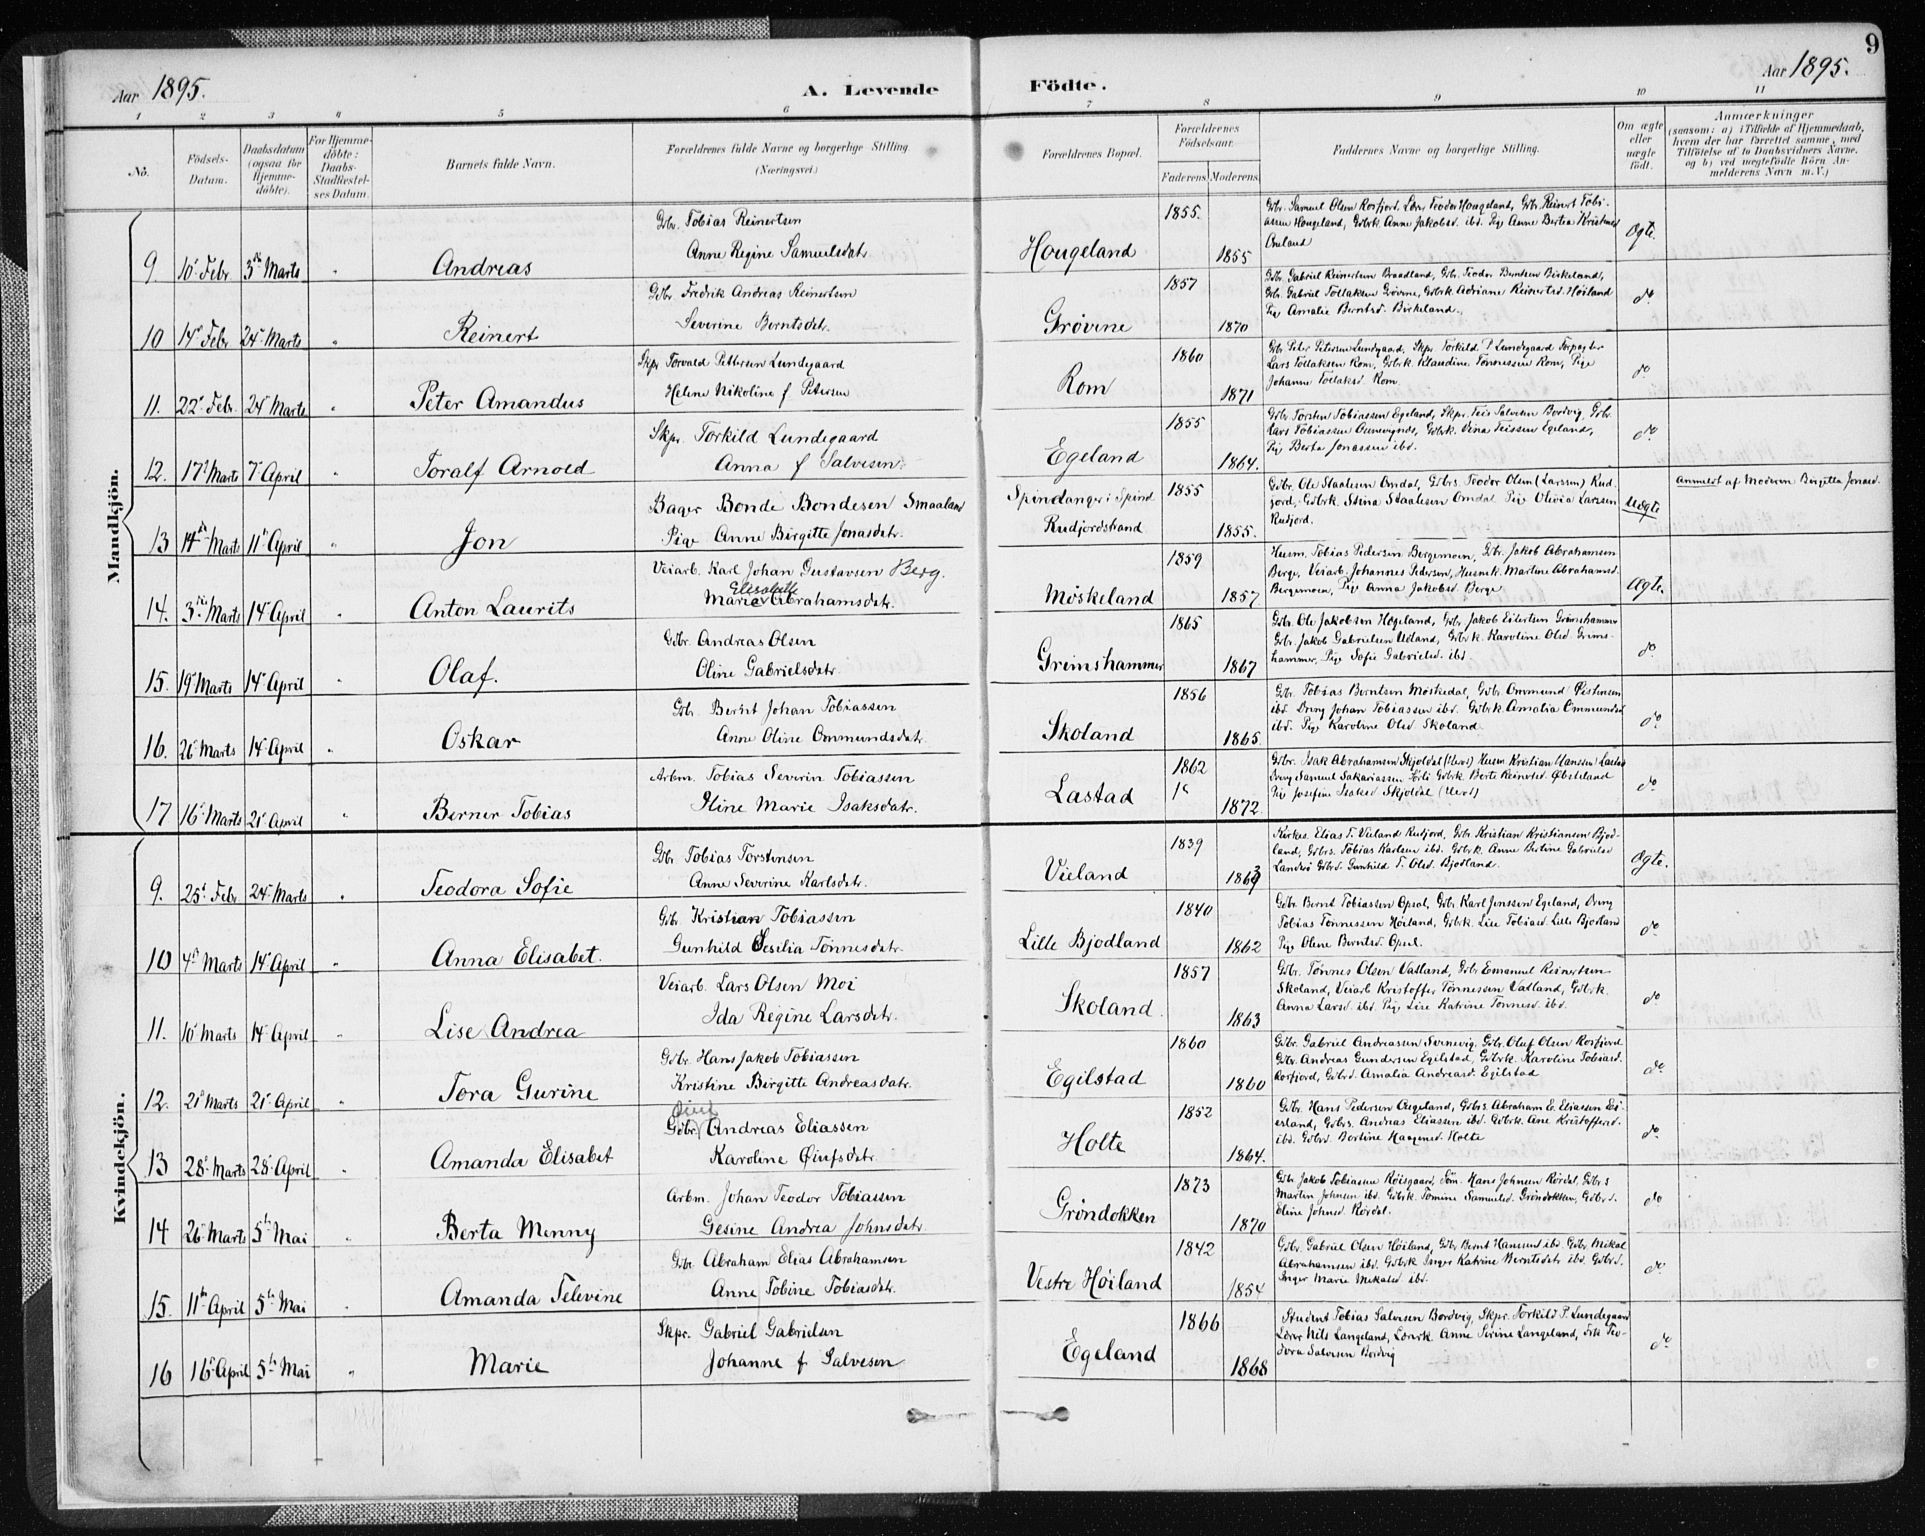 9
Aar 1895.
A. Levende Födte.
Aar 1895.
1 2 3 4 5 6 7 8 9 10 11
No.
Födsels-Datum.
Daabsdatum (ogsaa for Hjemmedöbte).
For Hjemmedöbte: Daabs-Stadfæstelses Datum.
Barnets fulde Navn.
Forældrenes fulde Navne og borgerlige Stilling (Næringsvei)
Forældrenes Bopæl.
Forældrenes Födselsaar.
Faderens Moderens
Faddernes Navne og borgerlige Stilling.
Om ægte eller uægte födt.
Anmærkninger
(saasom: a) i Tilfælde af Hjemmedaab, hvem der har forrettet samme, med Tilföielse af to Daabsvidners Navne, og b) ved uægtefödte Börn Anmelderens Navn m. V.)
Mandkjön.
Gbr. Tobias Reinertsen 1855.
9. 10 Febr 3die Marts " Andreas Anne Regine Samuelsdatr. Hougeland 1855 Ægte.
Gdbr Fredrik Andreas Reinertsen 1857 Gdbr. Gabriel Reinertsen Braadland, Gbr. Teodor Berntsen Birkeland,
Gbr. Gabriel Tollaksen Grövine, Gdbrk. Adriane Reinertsd. Høiland
10 14 Febr 24 Marts " Reinert Severine Berntsdatr. Grövine 1870 Pige Amalie Berntsd. Birkeland. do
Skpr Torvald Pettersen Lundegaard 1860 Gbr Peter Petersen Lundegaard, Skpr. Torkild P. Lundegaard Forpagter
Lars Tollaksen Rom, Gdbrk. Klaudine Tönnessen Rom, Pige
11. 22 Febr. 24 Marts " Peter Amandus Helene Nikoline f Petersen Rom 1871 Johanne Tollaksd. Rom do
Skpr. Torkild Lundegaard 1855 Gdbr Torsten Tobiassen Egeland, Skpr. Teis Salvesen Bordvig, Gdbr.
12. 17 Marts 7 April " Toralf Arnold Anna f Salvesen. Egeland 1864. Pige Berta Jonassen ibd. do
Bager Bonde Bondesen Smaaland Spindanger i Spind 1855 Gdbr. Ole Staalesen Omdal, Gdbrs. Teodor Olsen (Larssen) Rudjord, Gdbrk. Stina Staalesen Omdal Pige Olivia Larssen Rudjord.
13 14de Marts 11te April " Jon Pige Anne Birgitte Jonasdatr. Rudjordstrand 1855. Uægte Anmeldt af Moderen Birgitta Jonasd.
Veiarb. Karl Johan Gustavsen Berg. 1859 Husm. Tobias Pedersen Bergemoen, Gbr. Jakob Abrahamsen
Elisabeth Berge, Veiarb. Johannes Pedersen, Husmk. Martine Abrahamsd.
14. 3die Marts 14 April " Anton Laurits Marie Abrahamsdatr. Møskeland 1857. Bergemoen, Pige Anna Jakobsd. Berge Ægte.
Gdbr. Andreas Olsen 1865 Gdbr. Ole Jakobsen Hægeland, Gdbr Jakob Eilertsen Grimshammer
Gbr. Jakob Gabrielsen Udland, Gdbrk. Karoline Olsd Grimshammer, Pige Sofie Gabrielsd. ibd.
15. 19 Marts 14 April " Olaf. Oline Gabrielsdatr. Grimshammer 1867 do
Gbr. Bernt Johan Tobiassen 1856 Gdbr. Tobias Berntsen Møskedal, Gdbr Ommund Tistensen
ibd. Dreng Johan Tobiassen ibd. Gdbrk. Amalia Ommundsd
16. 26 Marts 14 April " Oskar Anne Oline Ommundsdatr. Skoland 1865. ibd. Pige Karoline Olsd Skoland do
Arbm. Tobias Severin Tobiassen 1862 Gdbr. Isak Abrahamsen Skjoldal Husm Kristian Hanssen Lastad
17 16 Marts 21 April " Berner Tobias Stine Marie Isaksdatr. Lastad 1872. do
Kvindekjön.
Gbr Tobias Torstensen 1839 Kirkes. Elias T. Vieland Rudjord, Gbr. Kristian Kristiansen Bjodland, Gdbrs. Tobias Karlsen ibd. Gdbrk. Anne Bertine Gabrielsd
9. 25 Febr 24 Marts " Teodora Sofie Anne Severine Karlsdatr. Vieland Landsø Gdbrd. Gunhild T. Olsd. Bjodland. Ægte.
Gdbr Kristian Tobiassen 1840 Gdbr Bernt Tobiassen Opsal, Gdbr Karl Jenssen Egeland, Dreng
Tobias Tönnessen Høiland, Gdbrk. Lise Tobiasd. Lille Bjodland
10 4de Marts 14 April " Anna Elisabet. Gunhild Sesilia Tönnesdatr. Lille Bjodland 1862 Pige Olene Berntsd. Opsal. do
Veiarb. Lars Olsen Moi 1857 Gdbr. Tønnes Olsen Vatland, Gdbr Emanuel Reinertsen
Skoland, Veiarb Kristoffer Tönnessen Vatland, Gdbrk.
11. 10 Marts 14 April " Lise Andrea Ida Regine Larsdatr. Skoland. 1863 Anna Larsd. ibd. Pige Lise Katrine Tönnesd. ibd. do
Gdbr. Hans Jakob Tobiassen 1860 Gdbr. Gabriel Andreassen Svenevig, Gdbr. Oluf Olsen Rosfjord
Gdbr. Andreas Gundersen Egilstad, Gdbrk. Karoline Tobiasd.
12. 21 Marts 21 April " Tora Gurine Kristine Birgitte Andreasdatr. Egilstad 1860 Rosfjord, Gdbrd. Amalia Andreasd. Egilstad do
Gdbr. Andreas Eliassen 1852 Gdbr. Hans Pedersen Augeland, Gdbrs. Abraham E. Eliassen Eierland, Gdbrs. Andreas Eliassen ibd. Gdbrk. Ane Kristoffersd.
13 28 Marts 28 April " Amanda Elisabet Karoline Øiufsdatr. Holte 1864. ibd. Gdbrd. Bertine Haagensd. Holte do
Arbm. Johan Teodor Tobiassen 1873 Gbr. Jakob Tobiassen Røisgaard, Tøm. Hans Johnsen Rørdal, Gdbrs
Martin Johnsen ibd. Gdbrk. Tomine Samuelsd. Gröndokken, Gdbrd.
14 26 Marts 5te Mai " Berta Menny Gesine Andrea Johnsdatr. Gröndokken 1870 Eline Johnsd. Rørdal. do
Gdbr Abraham Elias Abrahamsen 1842 Gdbr. Gabriel Olsen Høiland, Gdbr Bernt Hanssen ibd. Gdbr Mikal
Abrahamsen ibd. Gdbrk Inger Katrine Berntsdatr ibd. Gdbrd.
15. 11te April 5te Mai " Amanda Televine Anne Tobine Tobiasdatr. Vestre Høiland 1854 Inger Marie Mikalsd ibd. do
Skpr. Gabriel Gabrielsen 1866 Student Tobias Salvesen Bordvig, Skpr. Torkild P. Lundegaard
Lærer Nils Langeland, Lærerk. Anne Serine Langeland, Frk Teodora Salvesen Bordvig
16 16 April 5te Mai " Marie Johanne f Salvesen Egeland 1868 do